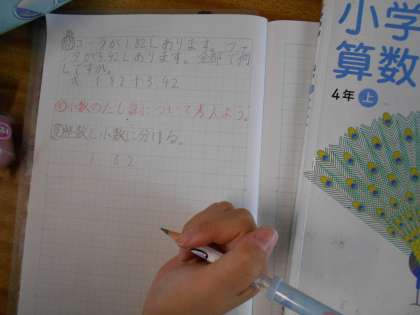 コーラが1.82Lあります。ファ
ンタが3.42Lあります。全部で何
Lですか。
式 1.82+3.42
小数のたし算について考えよう。
整数と小数に分ける。
1 82
小学
算数
4年 上